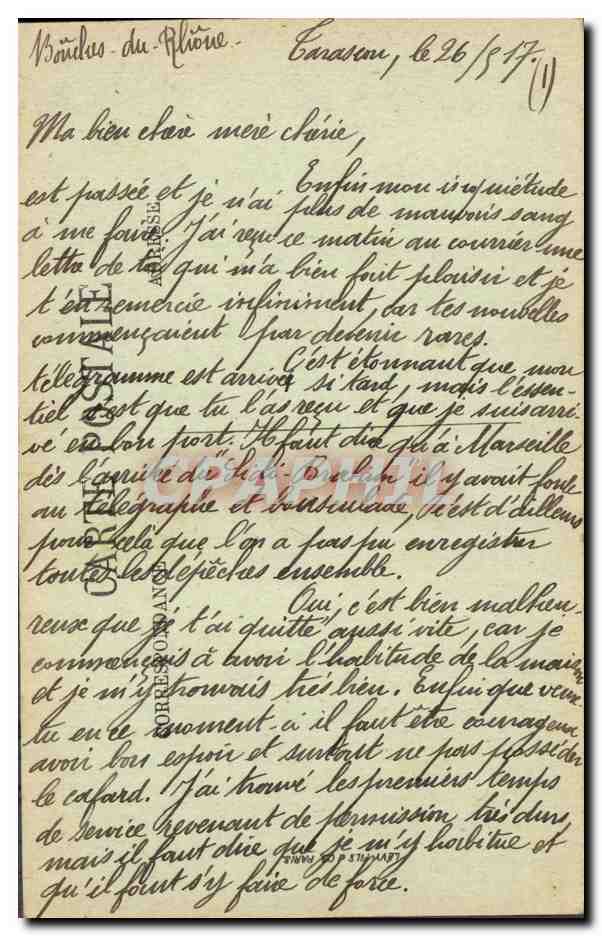 Bouches-du-Rhône- Tarascon, le 26/5 17.
(1)
Ma bien chère mère chérie,
Enfin mon inquiétude
est passée et je n'ai plus de mauvais sang
à me faire. J'ai reçu ce matin au courrier une
lettre de toi qui m'a bien fait plaisir et je
t'en remercie infiniment, car tes nouvelles
commençaient par devenir rares.
C'est étonnant que mon
télégramme est arrivé si tard, mais l'essen-
tiel c'est que tu l'as reçu et que je suis arri-
vé en bon port. Il faut dire qu'à Marseille
dès l'arrivée du "Sidi Brahim" il y avait foule
au télégraphe et bousculade, c'est d'ailleurs
pour cela que l'on a pas pu enregistrer
toutes les dépêches ensemble.
Oui, c'est bien malheu-
reux que je t'ai quitté aussi vite, car je
commençais à avoir l'habitude de la maison
et je m'y trouvais très bien. Enfin que veux-
tu en ce moment-ci il faut être courageux
avoir bon espoir et surtout ne pas posséder
le cafard. J'ai trouvé les premiers temps
de service revenant de permission très durs,
mais il faut dire que je m'y habitue et
qu'il faut s'y faire de force.
CARTE POSTALE
ADRESSE
CORRESPONDANCE
LEVY FILS & Co PARIS
CPAPHIL